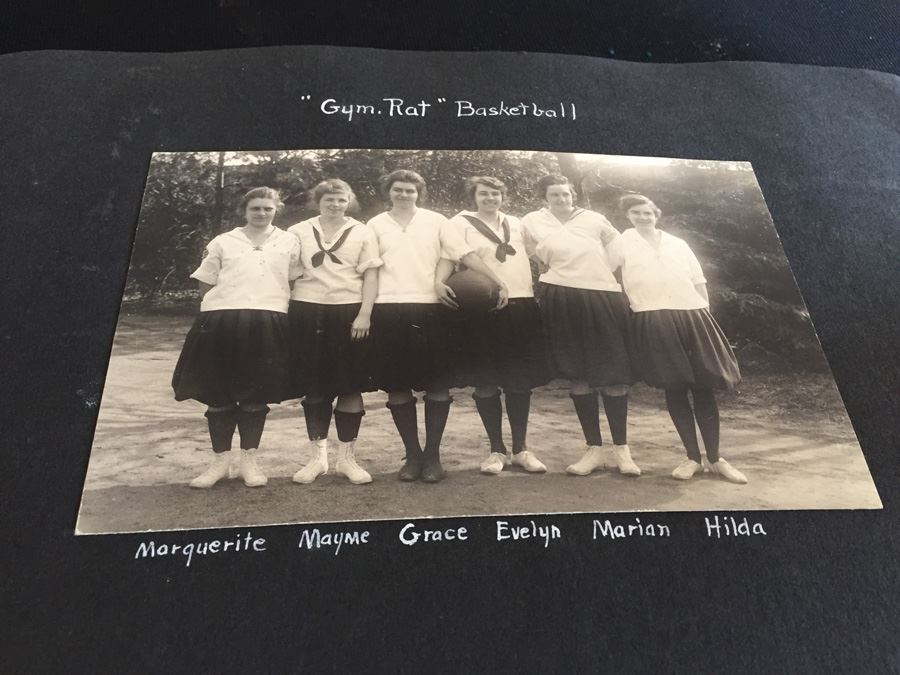 "Gym. Rat" Basketball
Marquerite Mayme Grace Evelyn Marian Hilda